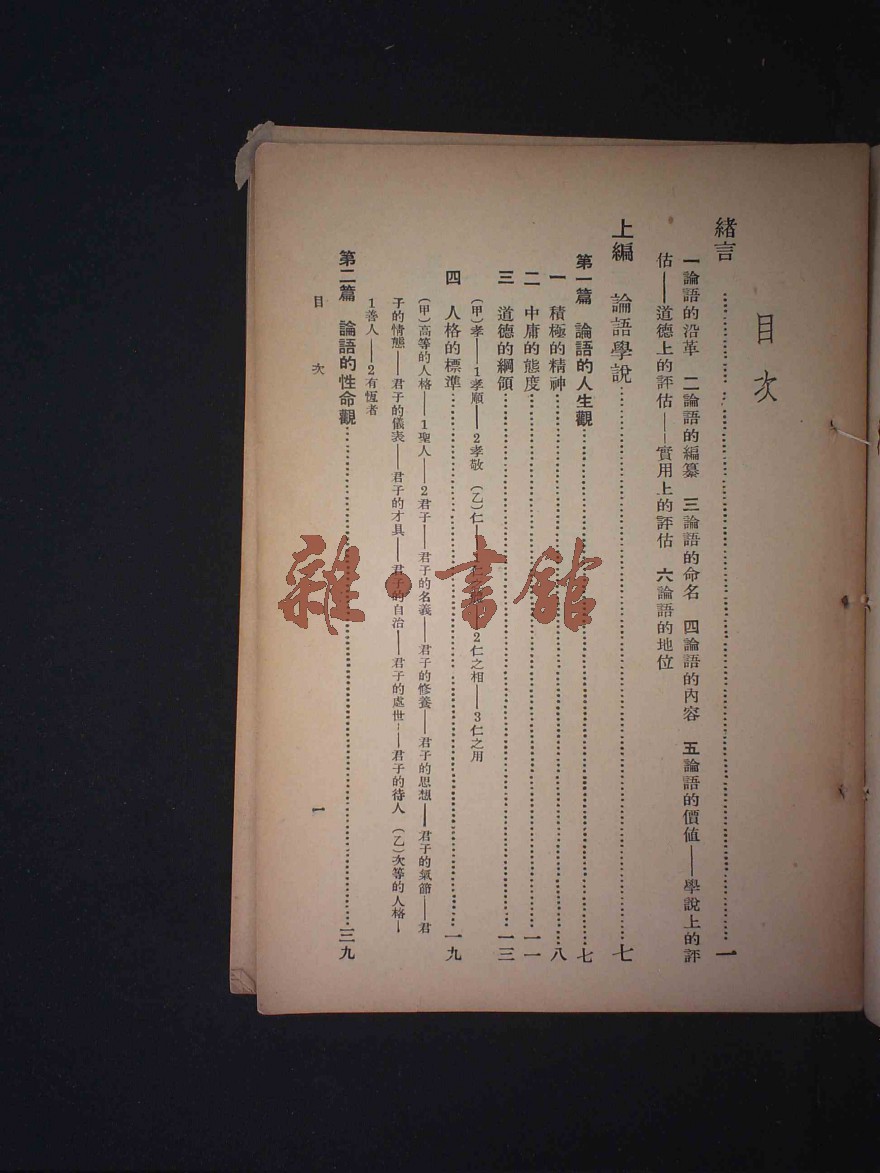 目次
緒言……………………一
一論語的沿革 二論語的編纂 三論語的命名 四論語的內容 五論語的價值——學說上的評
估——道德上的評估——實用上的評估 六論語的地位
上編 論語學說……………………七
第一篇 論語的人生觀……………………七
一 積極的精神……………………八
二 中庸的態度……………………一一
三 道德的綱領……………………一三
(甲)孝——1孝順——2孝敬 (乙)仁——1仁之——2仁之相——3仁之用
四 人格的標準……………………一九
(甲)高等的人格——1聖人——2君子——君子的名義——君子的修養——君子的思想——君子的氣節——君
子的情態——君子的儀表——君子的才具——君子的自治——君子的處世——君子的待人 (乙)次等的人格—
1善人——2有恆者
第二篇 論語的性命觀……………………三九
目次 一
雜·書館